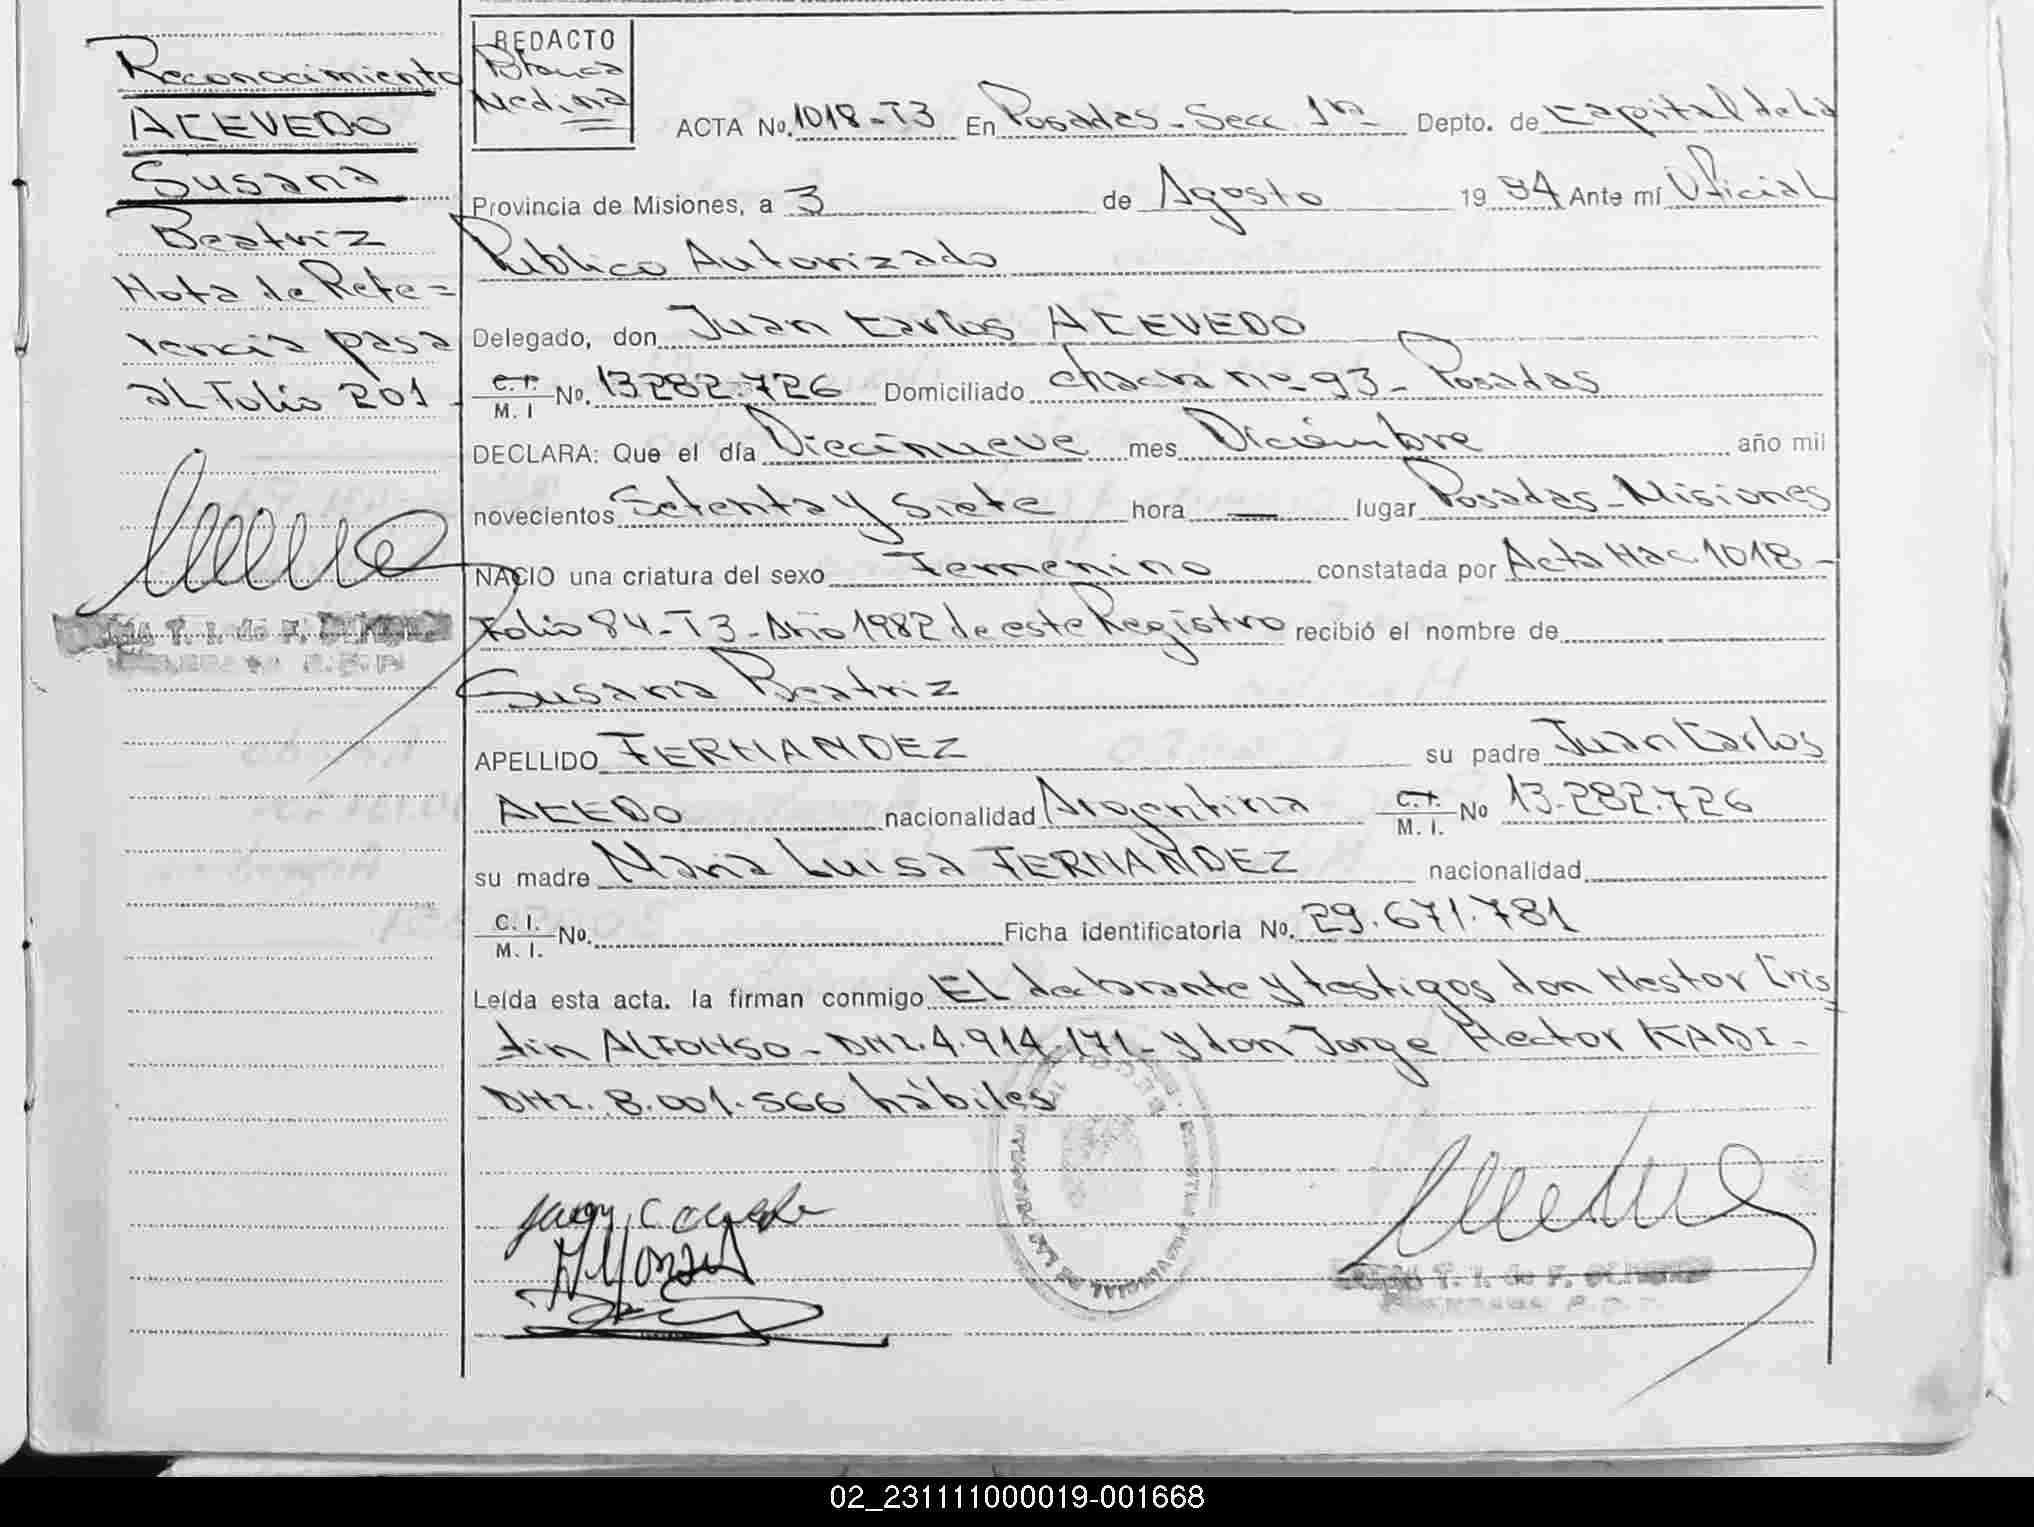 Reconocimiento
ACEVEDO
Susana
Beatriz
Nota de Refe=
rencia pasa
al Folio 201
REDACTO
Blanca
Medina
ACTA No. 1018-T3 En Posadas - Secc 1ra Depto. de Capital de la
Provincia de Misiones, a 3 de Agosto 1984 Ante mí Oficial
Público Autorizado
Delegado, don Juan Carlos ACEVEDO
C.I. M. I No. 13282.726 Domiciliado chacra no-93- Posadas
DECLARA: Que el día Diecinueve mes Diciembre año mil
novecientos Setenta y Siete hora — lugar Posadas-Misiones
NACIO una criatura del sexo Femenino constatada por Acta Nac 1018-
Folio 84-T3-Año 1982 de este Registro recibió el nombre de
Susana Beatriz
APELLIDO FERNANDEZ su padre Juan Carlos
ACEDO nacionalidad Argentina C.I. M. I. No 13.282.726
su madre Maria Luisa FERNANDEZ nacionalidad
C. I. M. I. No. Ficha identificatoria No. 29.671.781
Leída esta acta. la firman conmigo El declarante y testigos don Nestor Cris
tin ALFONSO - DNI. 4.914.171- y don Jorge Hector KADI-
DNI. 8.001.566 hábiles
T. I. de F.
T. I. de F.
02_231111000019-001668